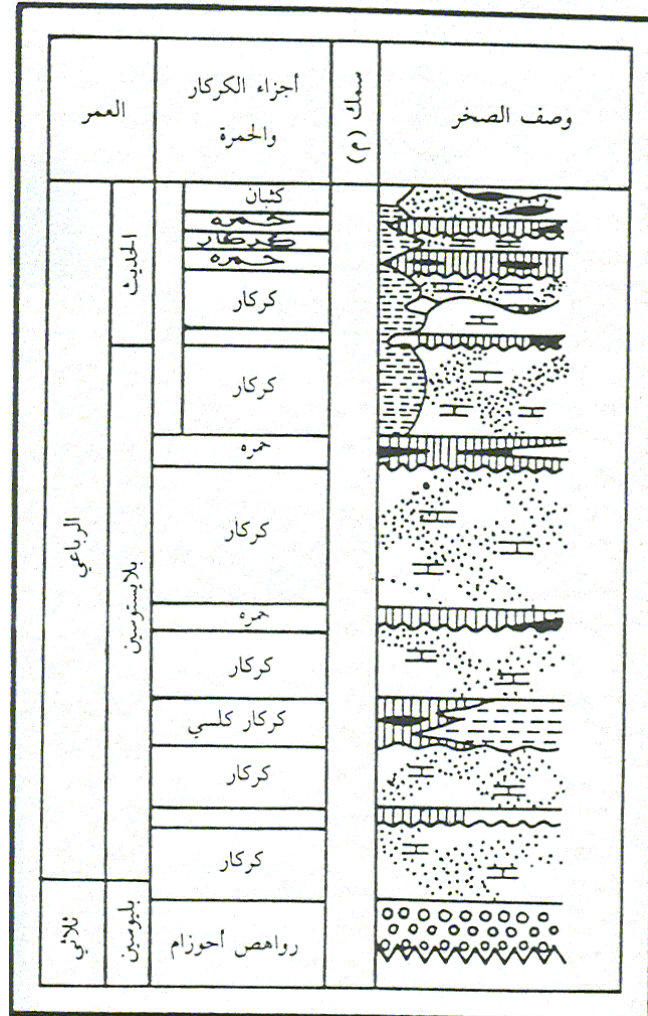 العمر
أجزاء الكركار
والحمرة
سمك (م)
وصف الصخر
الرباعي
الحديث
كثبان
حمره
كركار
حمره
كركار
بلايستوسين
كركار
حمره
كركار
حمره
كركار
كركار كلسي
كركار
كركار
ثلاثي
بليوسين
رواهص أحوزام